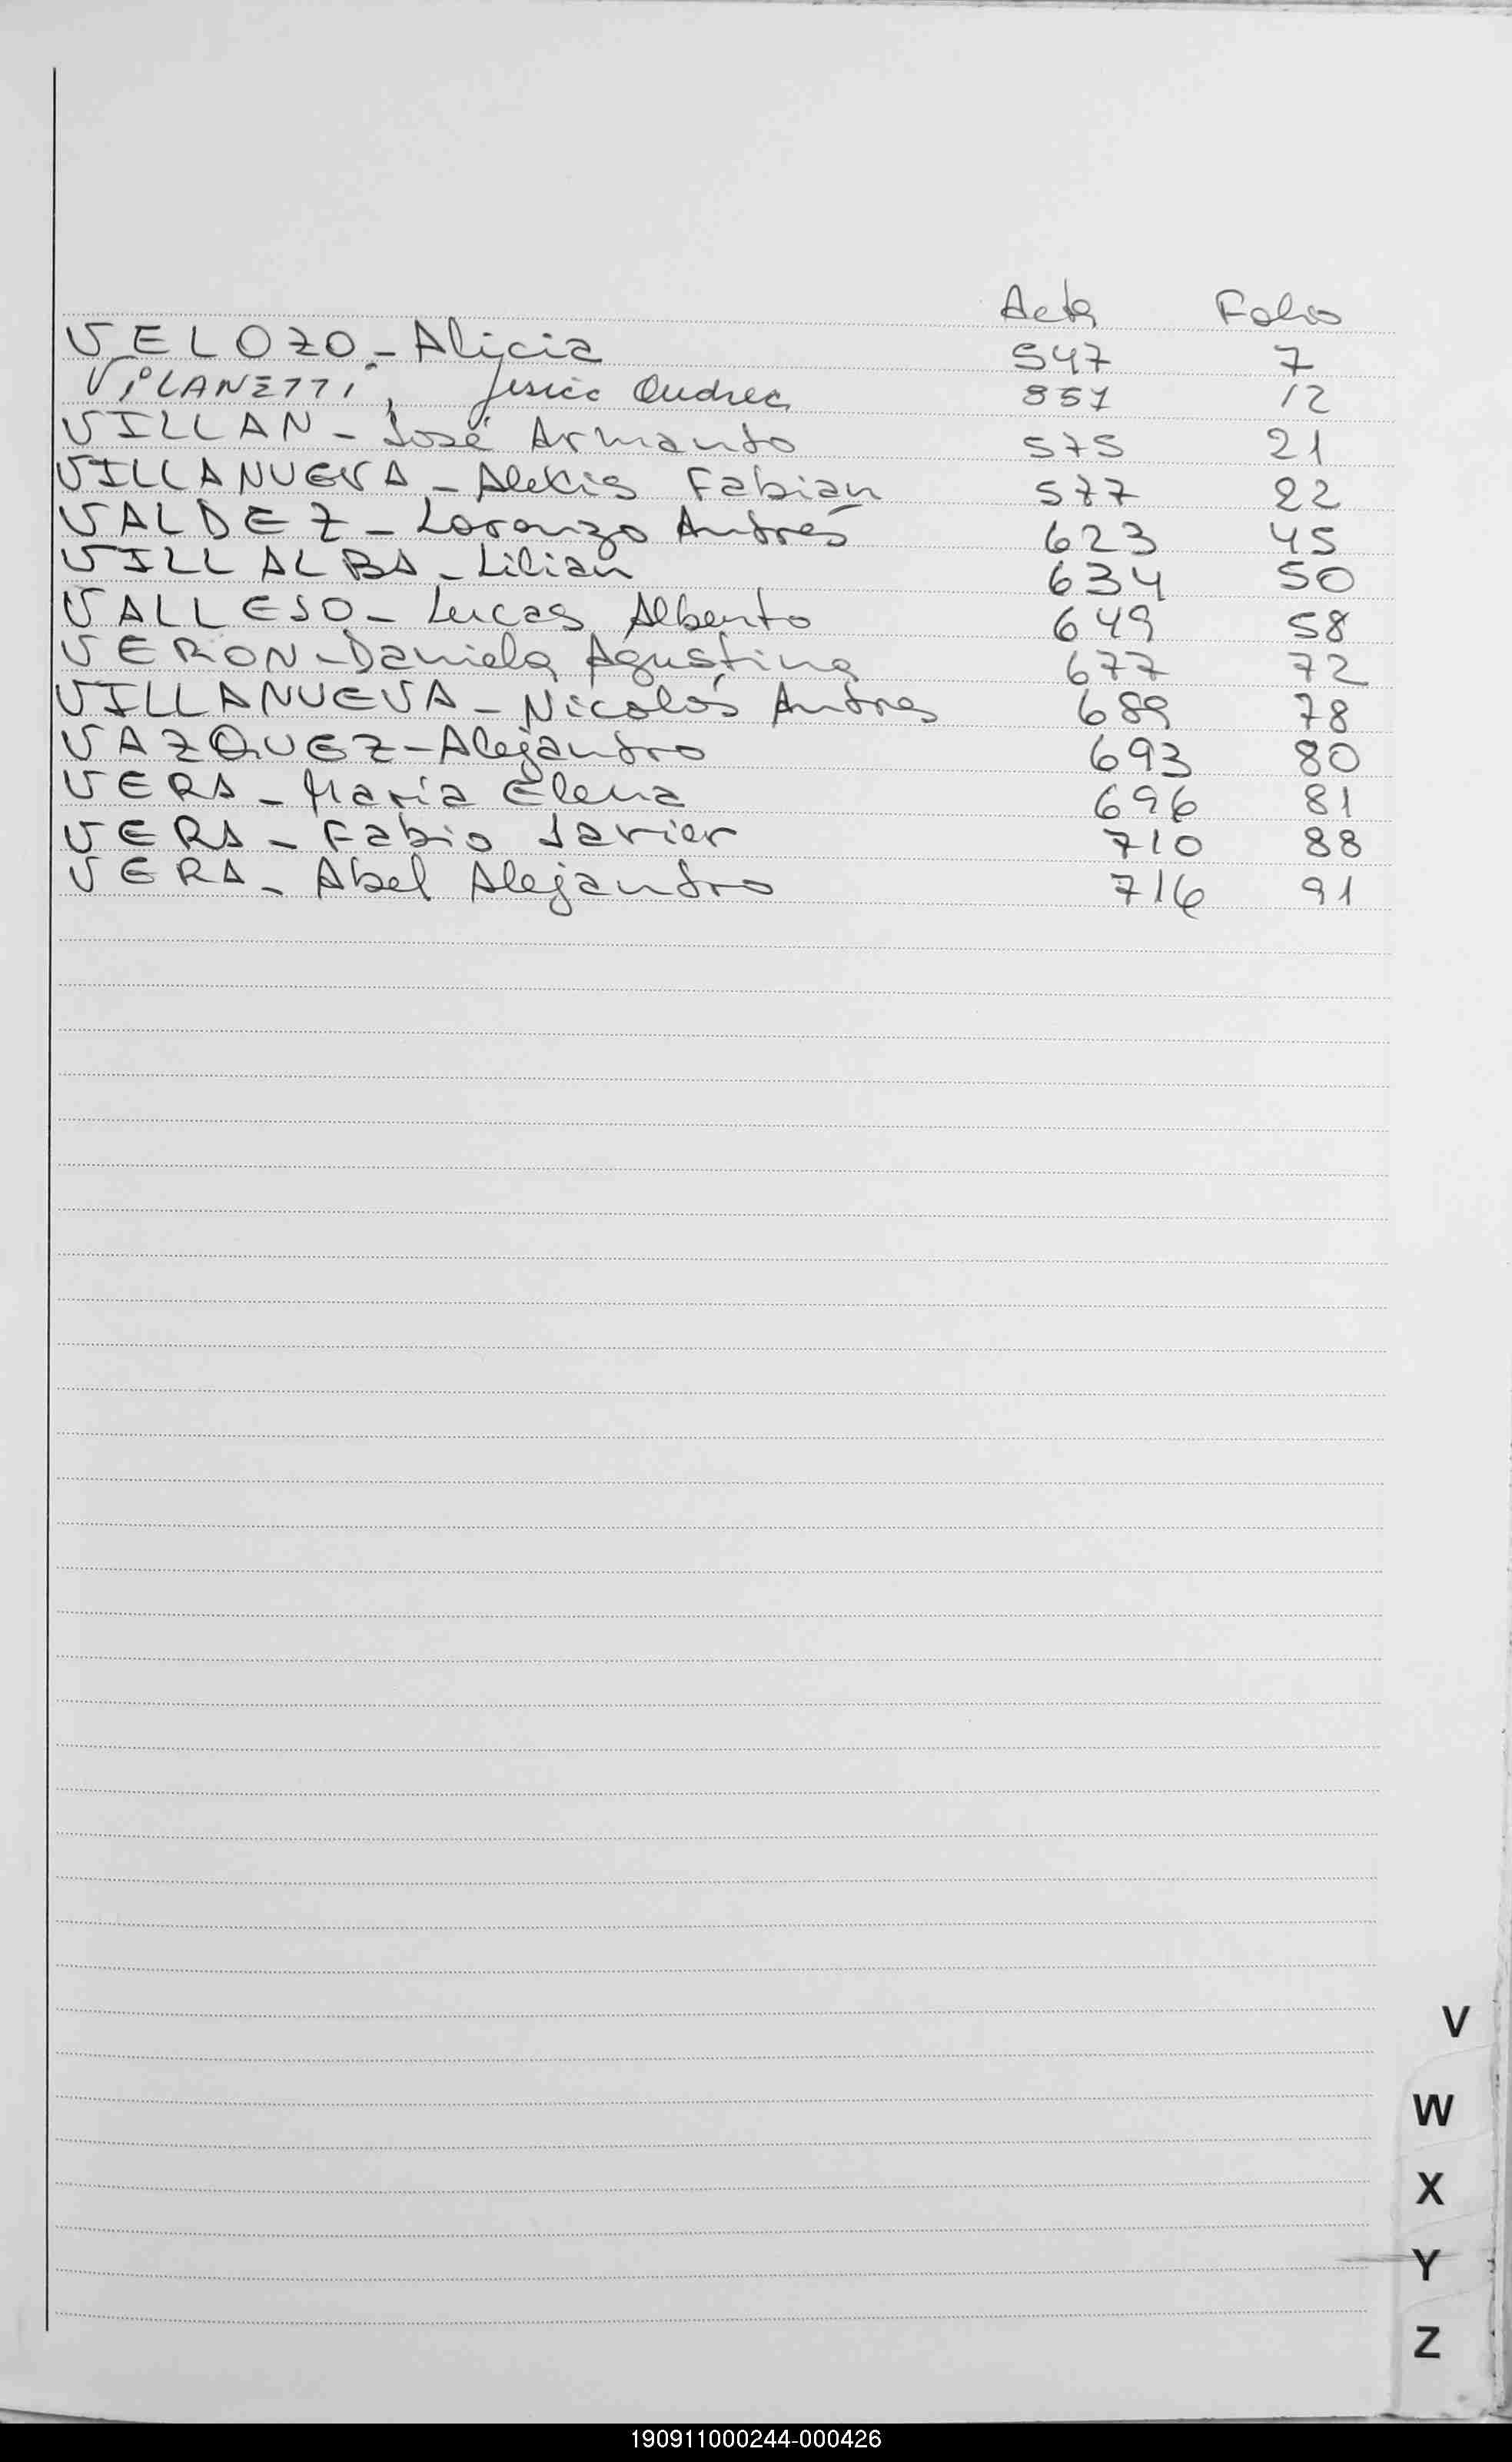 Acta Folio
VELOZO - Alicia 547 7
VILANETTI, Jesica Andrea 557 12
VILLAN - José Armando 575 21
VILLANUEVA - Alexis Fabian 577 22
VALDEZ - Lorenzo Andrés 623 45
VILLALBA - Lilian 634 50
VALLEJO - Lucas Alberto 649 58
VERON - Daniela Agustina 677 72
VILLANUEVA - Nicolás Andres 689 78
VAZQUEZ - Alejandro 693 80
VERA - María Elena 696 81
VERA - Fabio Javier 710 88
VERA - Abel Alejandro 716 91
V
W
X
Y
Z
190911000244-000426